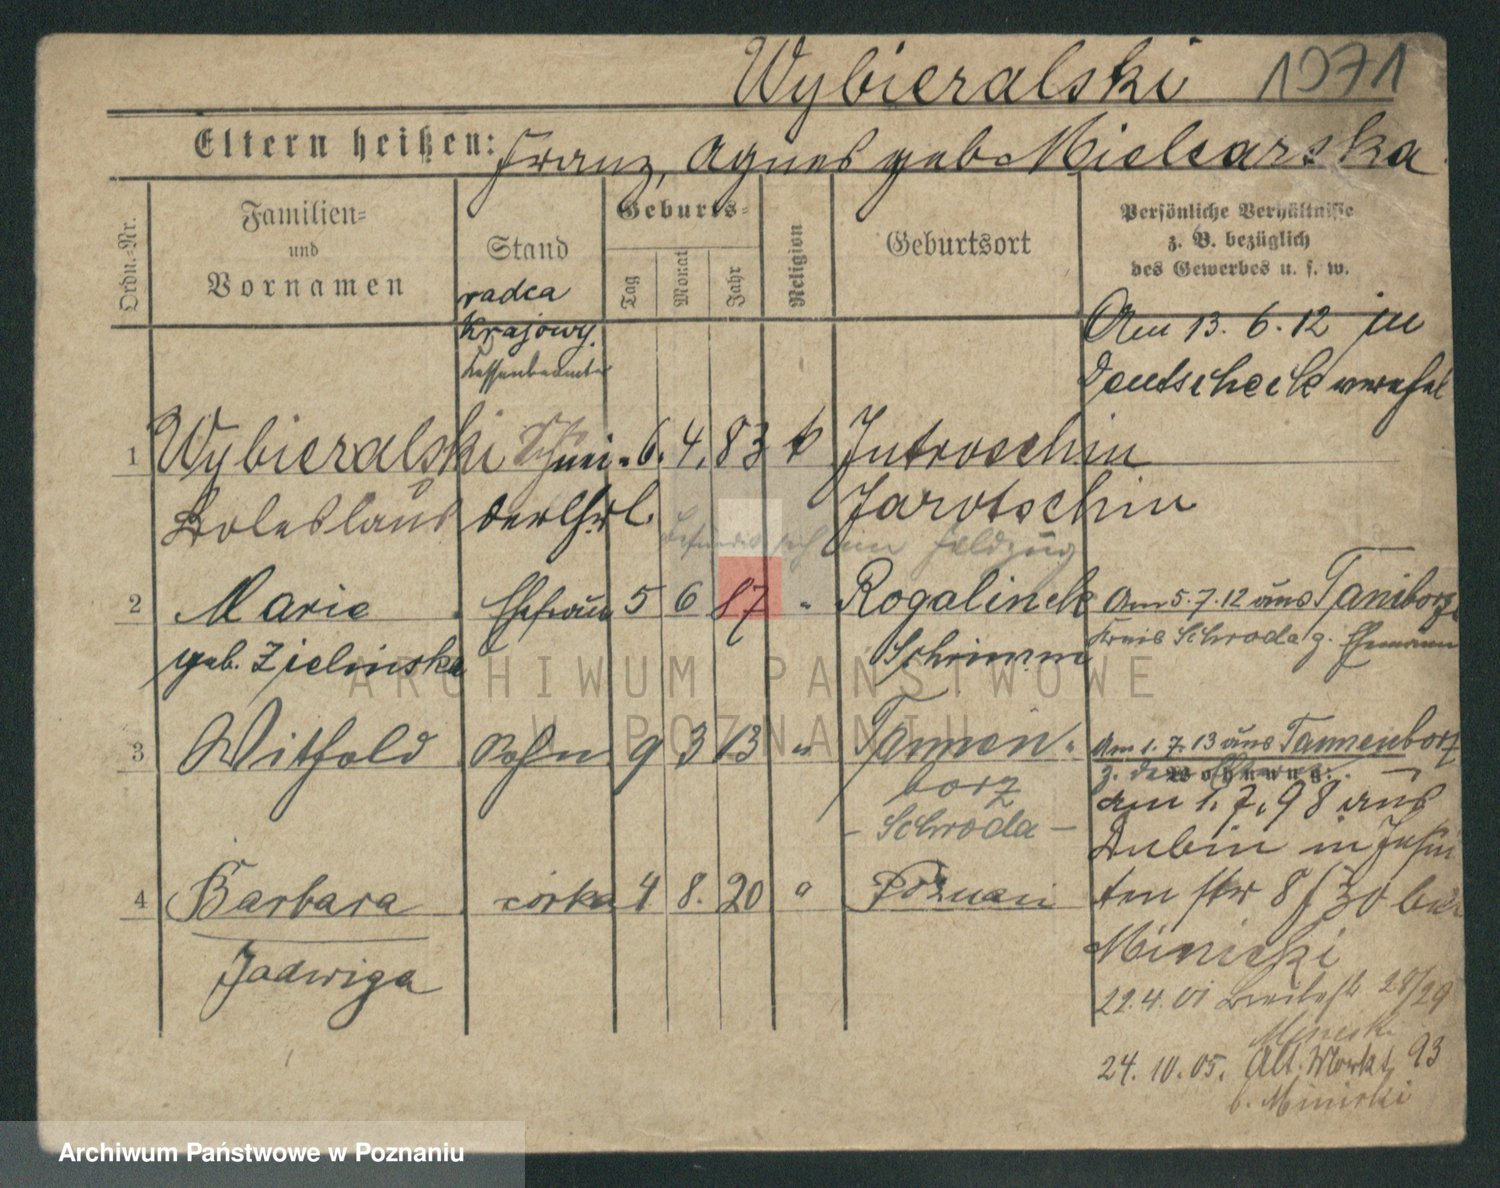 Wybieralski 1971
Eltern heißen: Franz, Agnes geb. Mielcarska
Ordn.=Nr.
Familien=
und
Vornamen
Stand
Geburts=
Tag
Monat
Jahr
Religion
Geburtsort
Persönliche Verhältnisse
z. B. bezüglich
des Gewerbes u. s. w.
radca
Krajowy.
Kassenbeamter
Am 13. 6. 12 in
Deutscheck vereh
1 Wybieralski Schnei- 6. 4. 83 k Jutroschin
Boleslaus derlhrl. Jarotschin
Befindet sich im Feldzug
2 Marie Ehefrau 5 6 87 " Rogalinek Am 5. 7. 12 aus
geb. Zielinska Schrimm Kreis Schroda z. Ehemann
3 Witold Sohn 9 3 13 " Tannen- Am 1. 7. 13 aus Tannenborz
borz z. den
Wohnung:
- Schroda -
am 1. 7. 98 aus
Dubin in Jesui
4 Barbara córka 4 8. 20 " Poznań ten str 8/30 bei
Jadwiga
Minicki
22.4.01 Breitestr 28/29
Minicki
24.10.05. Alt. Markt 93
b. Minicki
ARCHIWUM PAŃSTWOWE
W POZNANIU
Archiwum Państwowe w Poznaniu